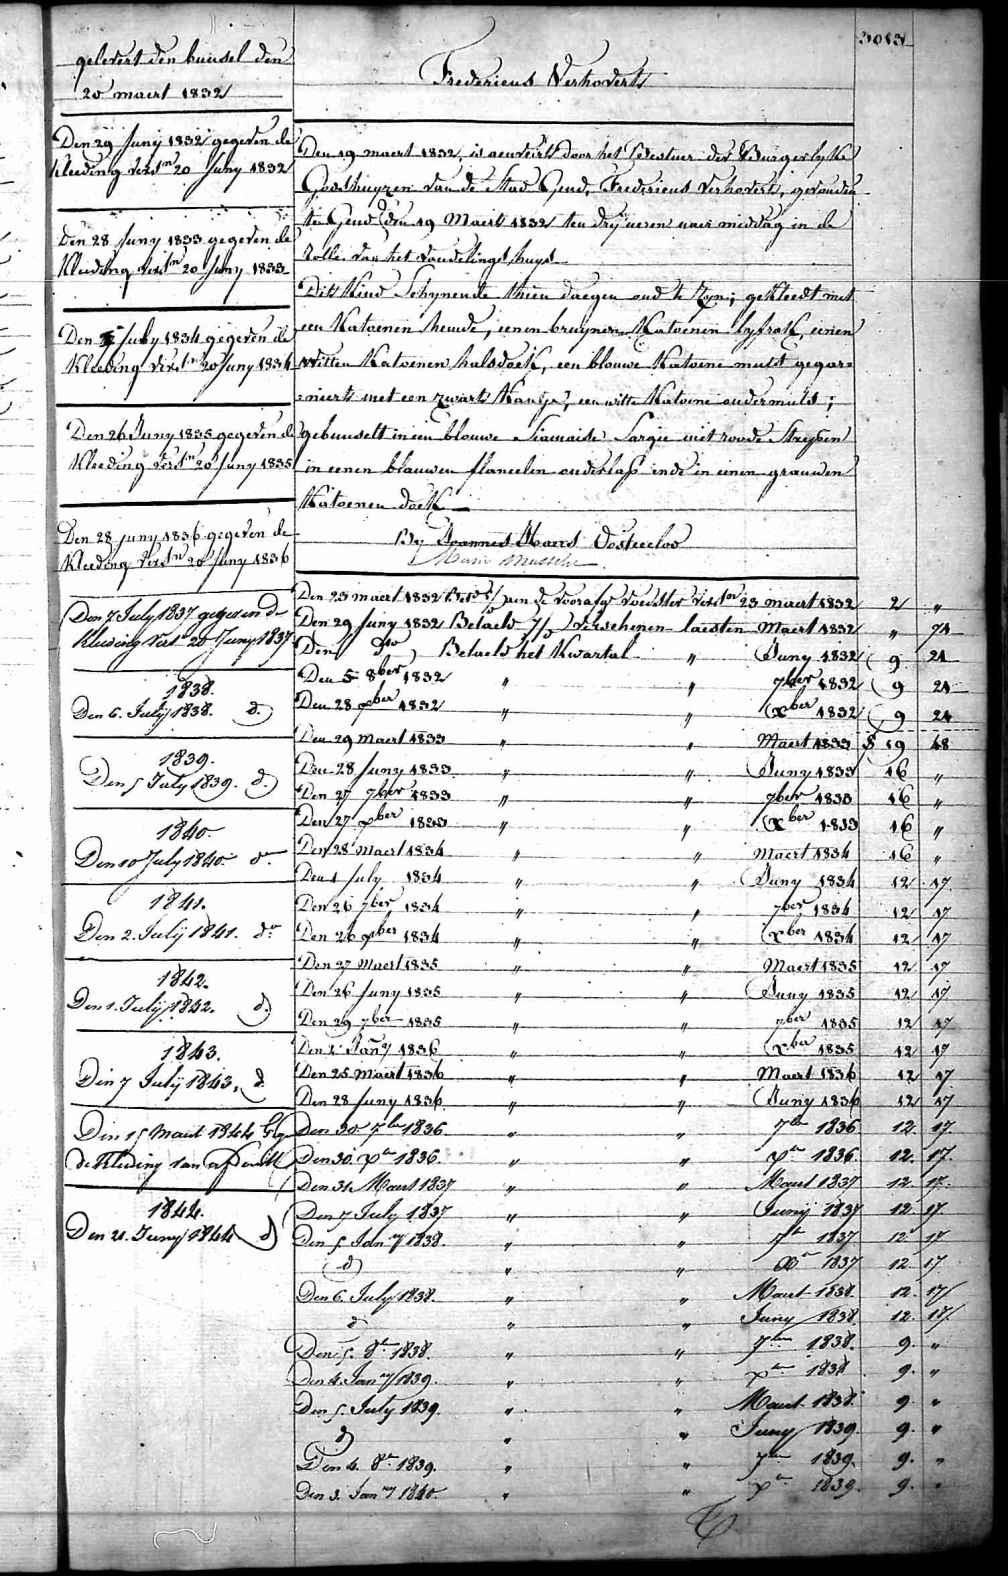 gelevert den buusel den
20 maert 1832
Den 29 Junÿ 1832 gegeven de
kleeding verstn 20 Juny 1832
Den 28 Juny 1833 gegeven de
Kleeding verstn 20 Juny 1833
Den July 1834 gegeven de
Kleeding verstn 20 Juny 1834
Den 26 Juny 1835 gegeven de
Kleeding verstn 20 Juny 1835
Den 28 juny 1836 gegeven de
Kleeding verstn 20 Juny 1836
Den 7 July 1837 gegeven de
Kleeding verst 20 Juny 1837
1838.
Den 6. Julÿ 1838. d.
1839.
Den 5 July 1839. d.
1840.
Den 10 July 1840. do
1841.
Den 2. Julÿ 1841. do
1842.
Den 1. Julÿ 1842. d.
1843.
Den 7 Julÿ 1843. d.
Den 15 Maert 1844
de Kleeding van
1844.
Den 21. Junÿ 1844 d
3013
Fredericus Verhoverts
Den 19 maert 1832, is aenveirt door het Bestuer der Burgerlyke
Godshuyzen van de Stad Gend, Fredericus Verhoverts, gevonden
te Gend den 19 Maert 1832 ten dry ueren naer middag in de
Rolle van het Vondelinge huys
Dit Kind Schynende thien daegen oud te Zyn; gekleedt met
een Katoenen hemde, eenen bruynen Katoenen lyfrok, eenen
witten Katoenen halsdoek, een blouwe Katoene muts gegar=
=neerts met een zwarts Kantje, een witte Katoene ondermuts;
gebuuselt in een blouwe Siamaise Sargie met roode Streypen
in eenen blauwen flanelen onderlap ende in eenen grauwen
Katoenen doek
By Joannes Baers Oosteeloo
Marie
Den 23 maert 1832 aen de voorafge voedster verstn 23 maert 1832 2 "
Den 29 Juny 1832 Betaeld verschenen laesten Maert 1832 " 74
Den do Betaeld het Kwartal " Juny 1832 9 24
Den 5 8ber 1832 " " 7ber 1832 9 24
Den 28 xber 1832 " " xber 1832 9 24
Den 29 maert 1833 " " Maert 1833 $ 19 48
Den 28 Juny 1833 " " Juny 1833 16 "
Den 27 7ber 1833 " " 7ber 1833 16 "
Den 27 xber 1833 " " xber 1833 16 "
Den 28 Maert 1834 " " Maert 1834 16 "
Den 1 July 1834 " " Juny 1834 12 17
Den 26 7ber 1834 " " 7ber 1834 12 17
Den 26 xber 1834 " " xber 1834 12 17
Den 27 Maert 1835 " " Maert 1835 12 17
Den 26 Juny 1835 " " Juny 1835 12 17
Den 29 7ber 1835 " " 7ber 1835 12 17
Den 2 Jany 1836 " " xber 1835 12 17
Den 25 Maert 1836 " " Maert 1836 12 17
Den 28 Juny 1836 " " Juny 1836 12 17
Den 30 7br 1836 " " 7br 1836 12. 17.
Den 30. xr 1836. " " xr 1836. 12. 17.
Den 31. Maert 1837 " " Maert 1837 12. 17.
Den 7 July 1837 " " Junÿ 1837 12. 17.
Den 5 Jany 1838. " " 7r 1837 12 17
d " " xr 1837 12. 17.
Den 6. July 1838. " " Maert 1838. 12. 17
d " " Juny 1838 12. 17.
Den 5. 8r 1838. " " 7br 1838. 9. "
Den 4. Jany 1839. " " xr 1838 9. "
Den 5. July 1839. " " Maert 1838 9. "
d " " Juny 1839. 9. "
Den 4. 8r 1839. " " 7br 1839. 9. "
Den 3. Jany 1840. " " xr 1839. 9. "